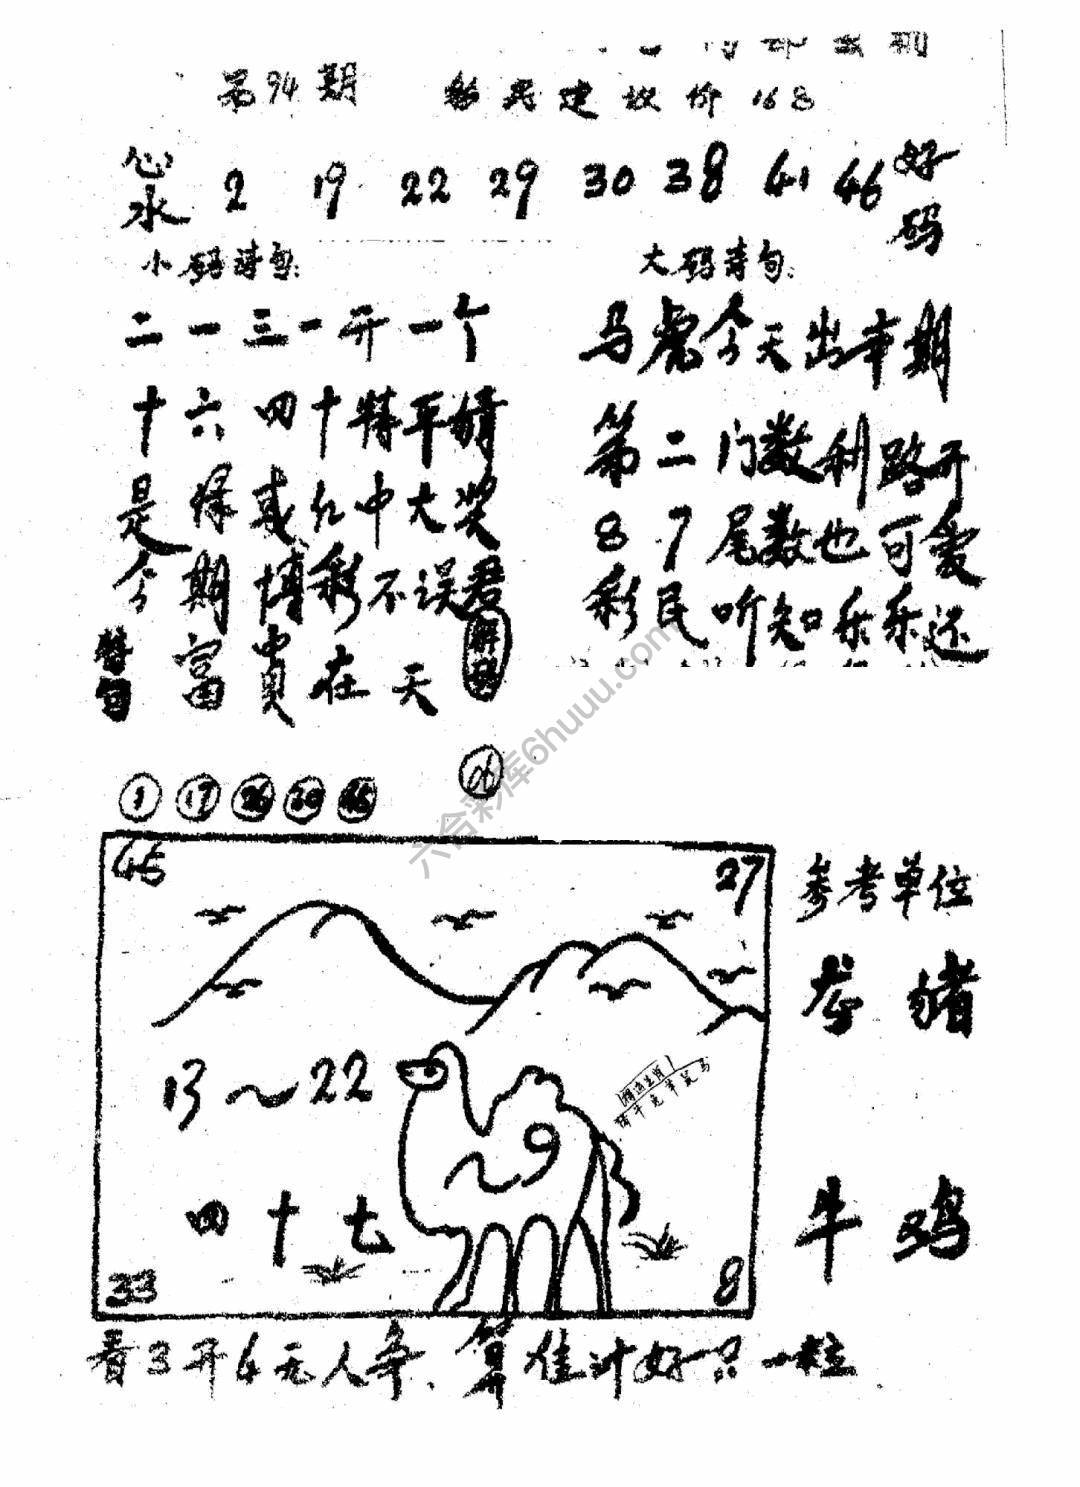 第94期 彩民建议价168
心水 2 19 22 29 30 38 41 46 好码
小码诗句:
二一三一开一个
十六四十特平
是保或红中大奖
今期博彩不误君
特句 富贵在天
大码诗句:
马虎今天出本期
第二门数利路开
8 7尾数也可爱
彩民听知乐乐还
六合彩库6huuu.com
1 17
06
45 27
13~22
9
四十七
33 8
参考单位
龙 猪
牛 鸡
看3开4无人争、算准计好只一粒